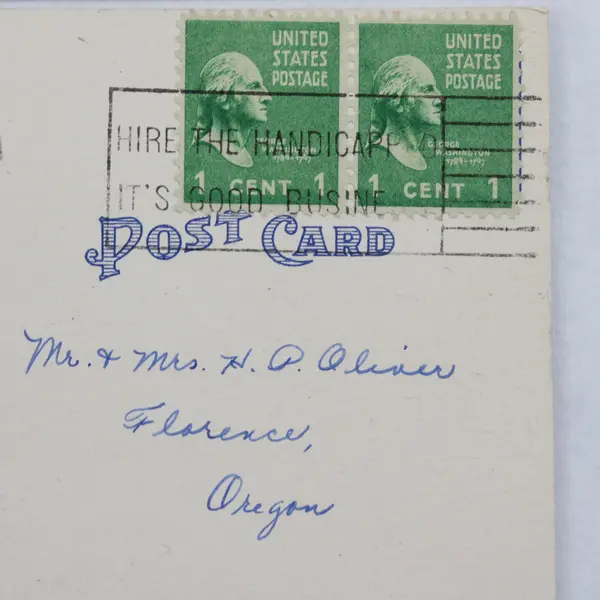 UNITED
STATES
POSTAGE
GEORGE
WASHINGTON
1789-1797
1 CENT 1
UNITED
STATES
POSTAGE
GEORGE
WASHINGTON
1789-1797
1 CENT 1
HIRE THE HANDICAPP
IT'S GOOD BUSINE
POST CARD
Mr. & Mrs. H. P. Oliver
Florence,
Oregon